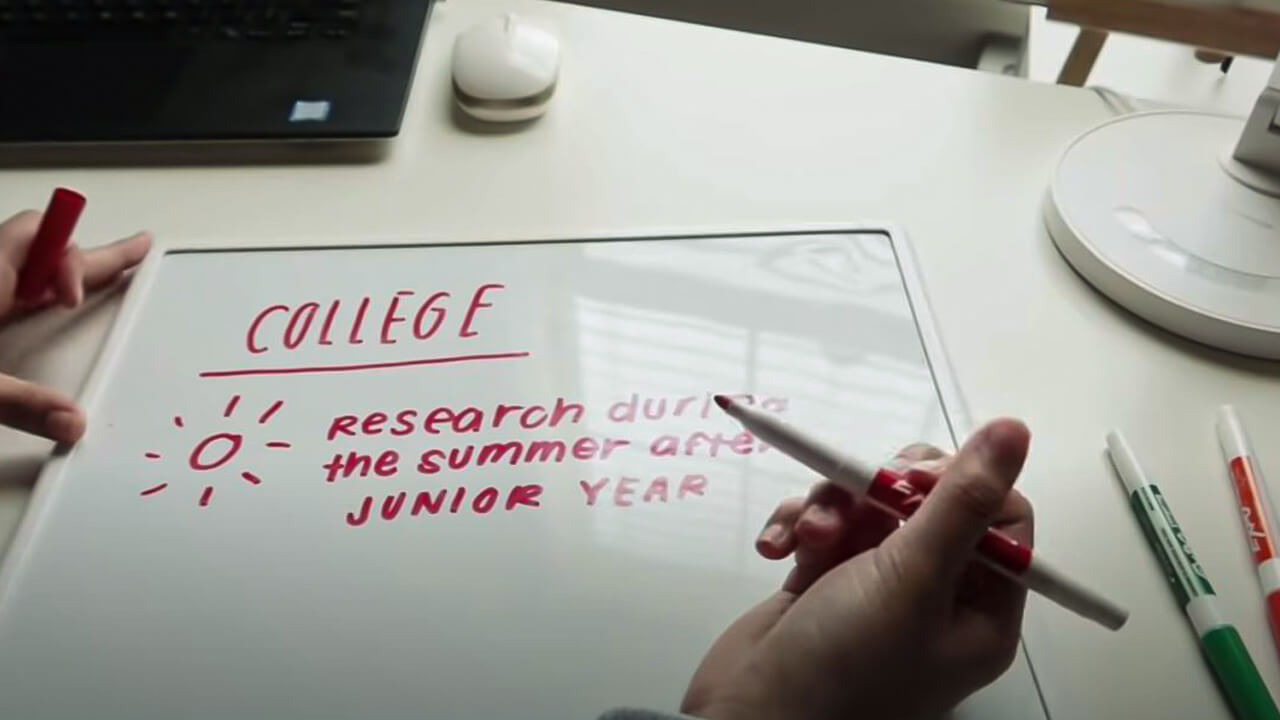 COLLEGE
Research during
the summer after
JUNIOR YEAR